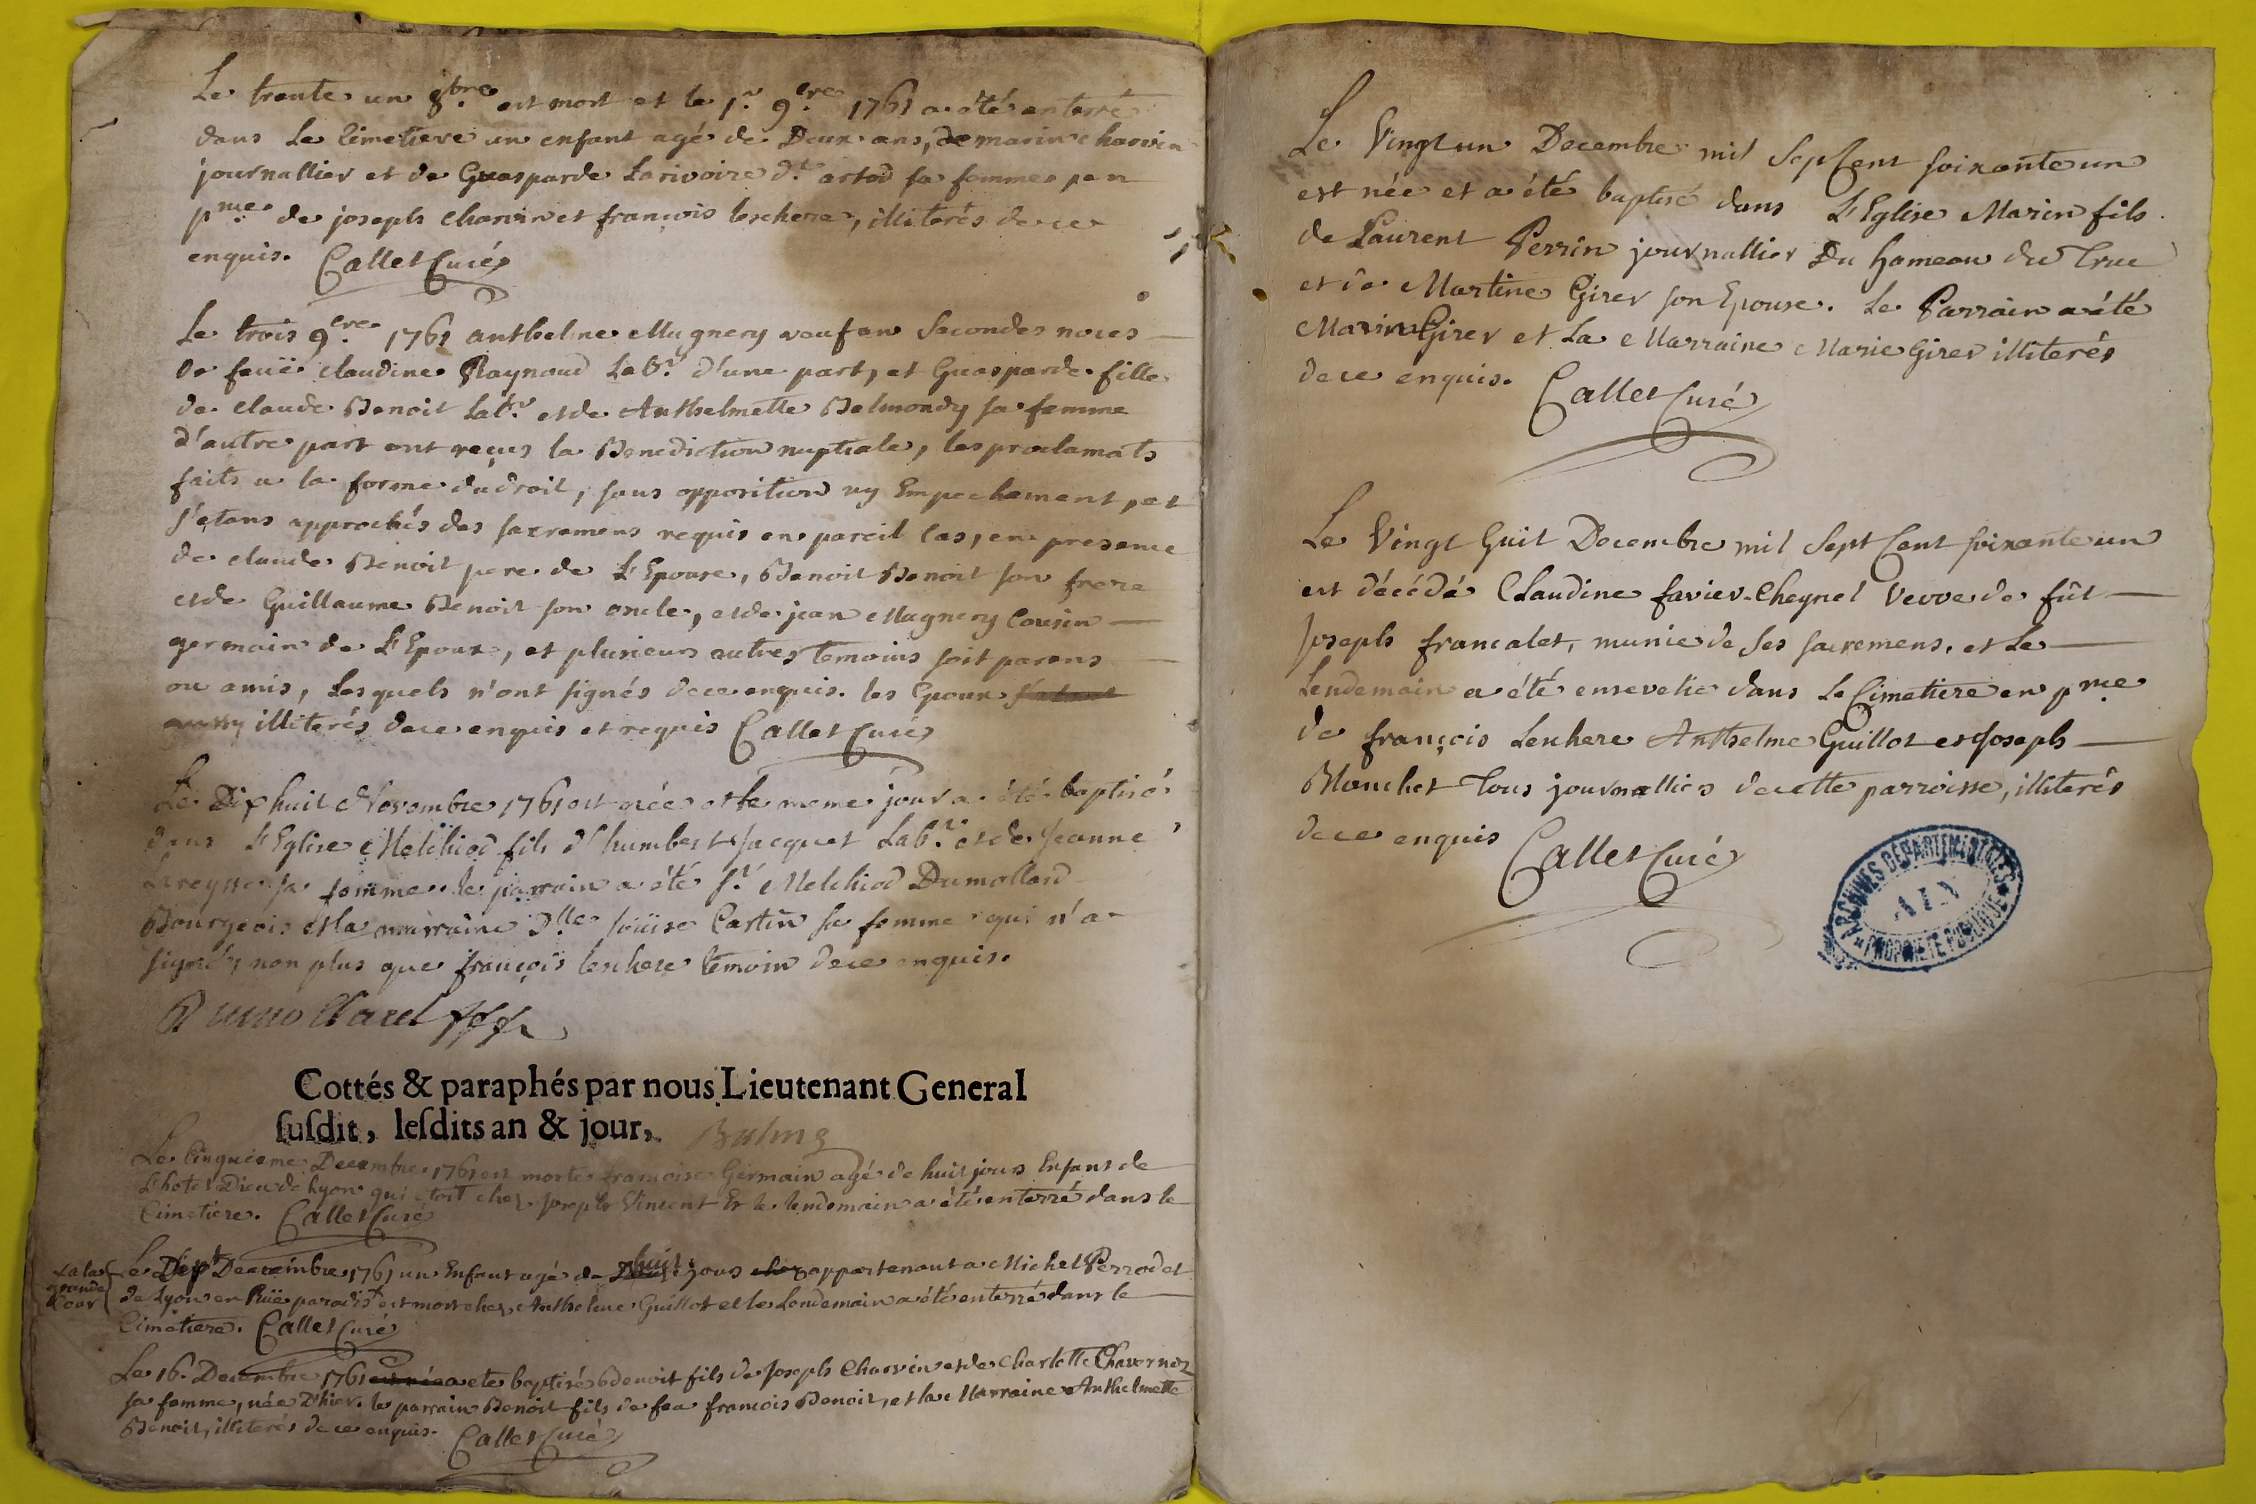 Le trente un 8.bre est mort et le 1.r 9.bre 1761 a été enterré
dans le cimetiere un enfant agé de Deux ans, de marin charvin
journallier et de Guasparde Larivoire d.te artod sa femme en
p.nce de joseph charvin et françois leschere, illiterés de ce
enquis. Callet Curé
Le trois 9.bre 1761 anthelme Mugnery veuf en secondes noces
de feuë claudine Raynaud Lab.r d'une part, et Guasparde fille
de claude Benoit Lab.r et de Anthelmette Belmondy sa femme
d'autre part ont reçus la Benediction nuptiale, les proclamats
faits a la forme du droit, sans opposition ny Empechement, et
s'etans approchés des sacremens requis en pareil cas, en presence
de claude Benoit pere de L'Epouse, Benoit Benoit son frere
et de Guillaume Benoit son oncle, et de jean Mugnery cousin
germain de L'Epoux, et plusieurs autres temoins soit parens
ou amis, Lesquels n'ont signés de ce enquis. les Epoux
aussy illiterés de ce enquis et requis Callet Curé
Le Dix huit Novembre 1761 est née et le meme jour a été baptisé
dans L'Eglise Melchiod fils d'humbert Jacquet Lab.r et de Jeanne
sa femme. le parrain a été S.r Melchiod Dumollard
Bourgeois et la marraine D.lle Loüise Cartin sa femme qui n'a
signé, non plus que françois leschere temoin de ce enquis.
Dumollard
Cottés & paraphés par nous Lieutenant General
suſdit, leſdits an & jour,
Le Cinquieme Decembre 1761 est morte francoise Germain agé de huit jours Enfant de
L'hotel Dieu de Lyon qui etoit chez joseph Vincent Et le lendemain a été enterré dans le
Cimetiere. Callet Curé
Le Sept Decembre 1761 un Enfant agé de huit jous appartenant a Michel Perrodet
a la grande Cour
de Lyon en Rüe paradis est mort chez Anthelme Guillot et le Lendemain a été enterré dans le
Cimetiere. Callet Curé
Le 16. Decembre 1761 a ete baptisé Benoit fils de Joseph Charvin et de Charlotte Chavernoz
sa femme, née D'hier. le parrain Benoit fils de feu francois Benoit, et la Marraine Anthelmette
Benoit, illiterés de ce enquis. Callet Curé
Le Vingt un Decembre mil Sept Cent soixante un
est née et a été baptisé dans L'Eglise Marin fils
de Laurent Perrin journallier Du hameau du Truc
et de Martine Girer son Epouse. Le Parrain a été
Marin Girer et La Marraine Marie Girer illiterés
de ce enquis. Callet Curé
Le Vingt huit Decembre mil Sept Cent soixante un
est décédé Claudine favier-Cheynel Vevve de fût
Joseph francalet, munie de ses sacremens, et Le
Lendemain a été ensevelie dans Le Cimetiere en p.nce
de françois Leschere Anthelme Guillot et Joseph
Blanchet Tous journalliers de cette parroisse, illiterés
de ce enquis Callet Curé
ARCHIVES DÉPARTEMENTALES
AIN
PROPRIÉTÉ PUBLIQUE